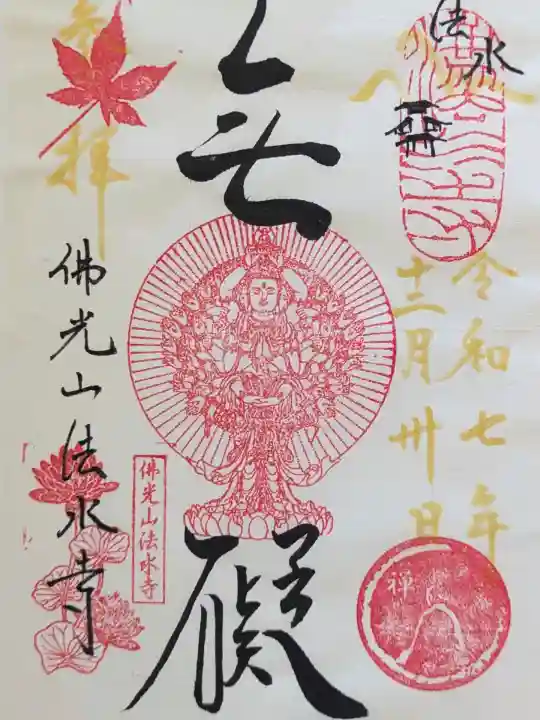 法水
令和七年
十二月卅日
无礙
参拝
佛光山法水寺
佛光山法水寺
禅